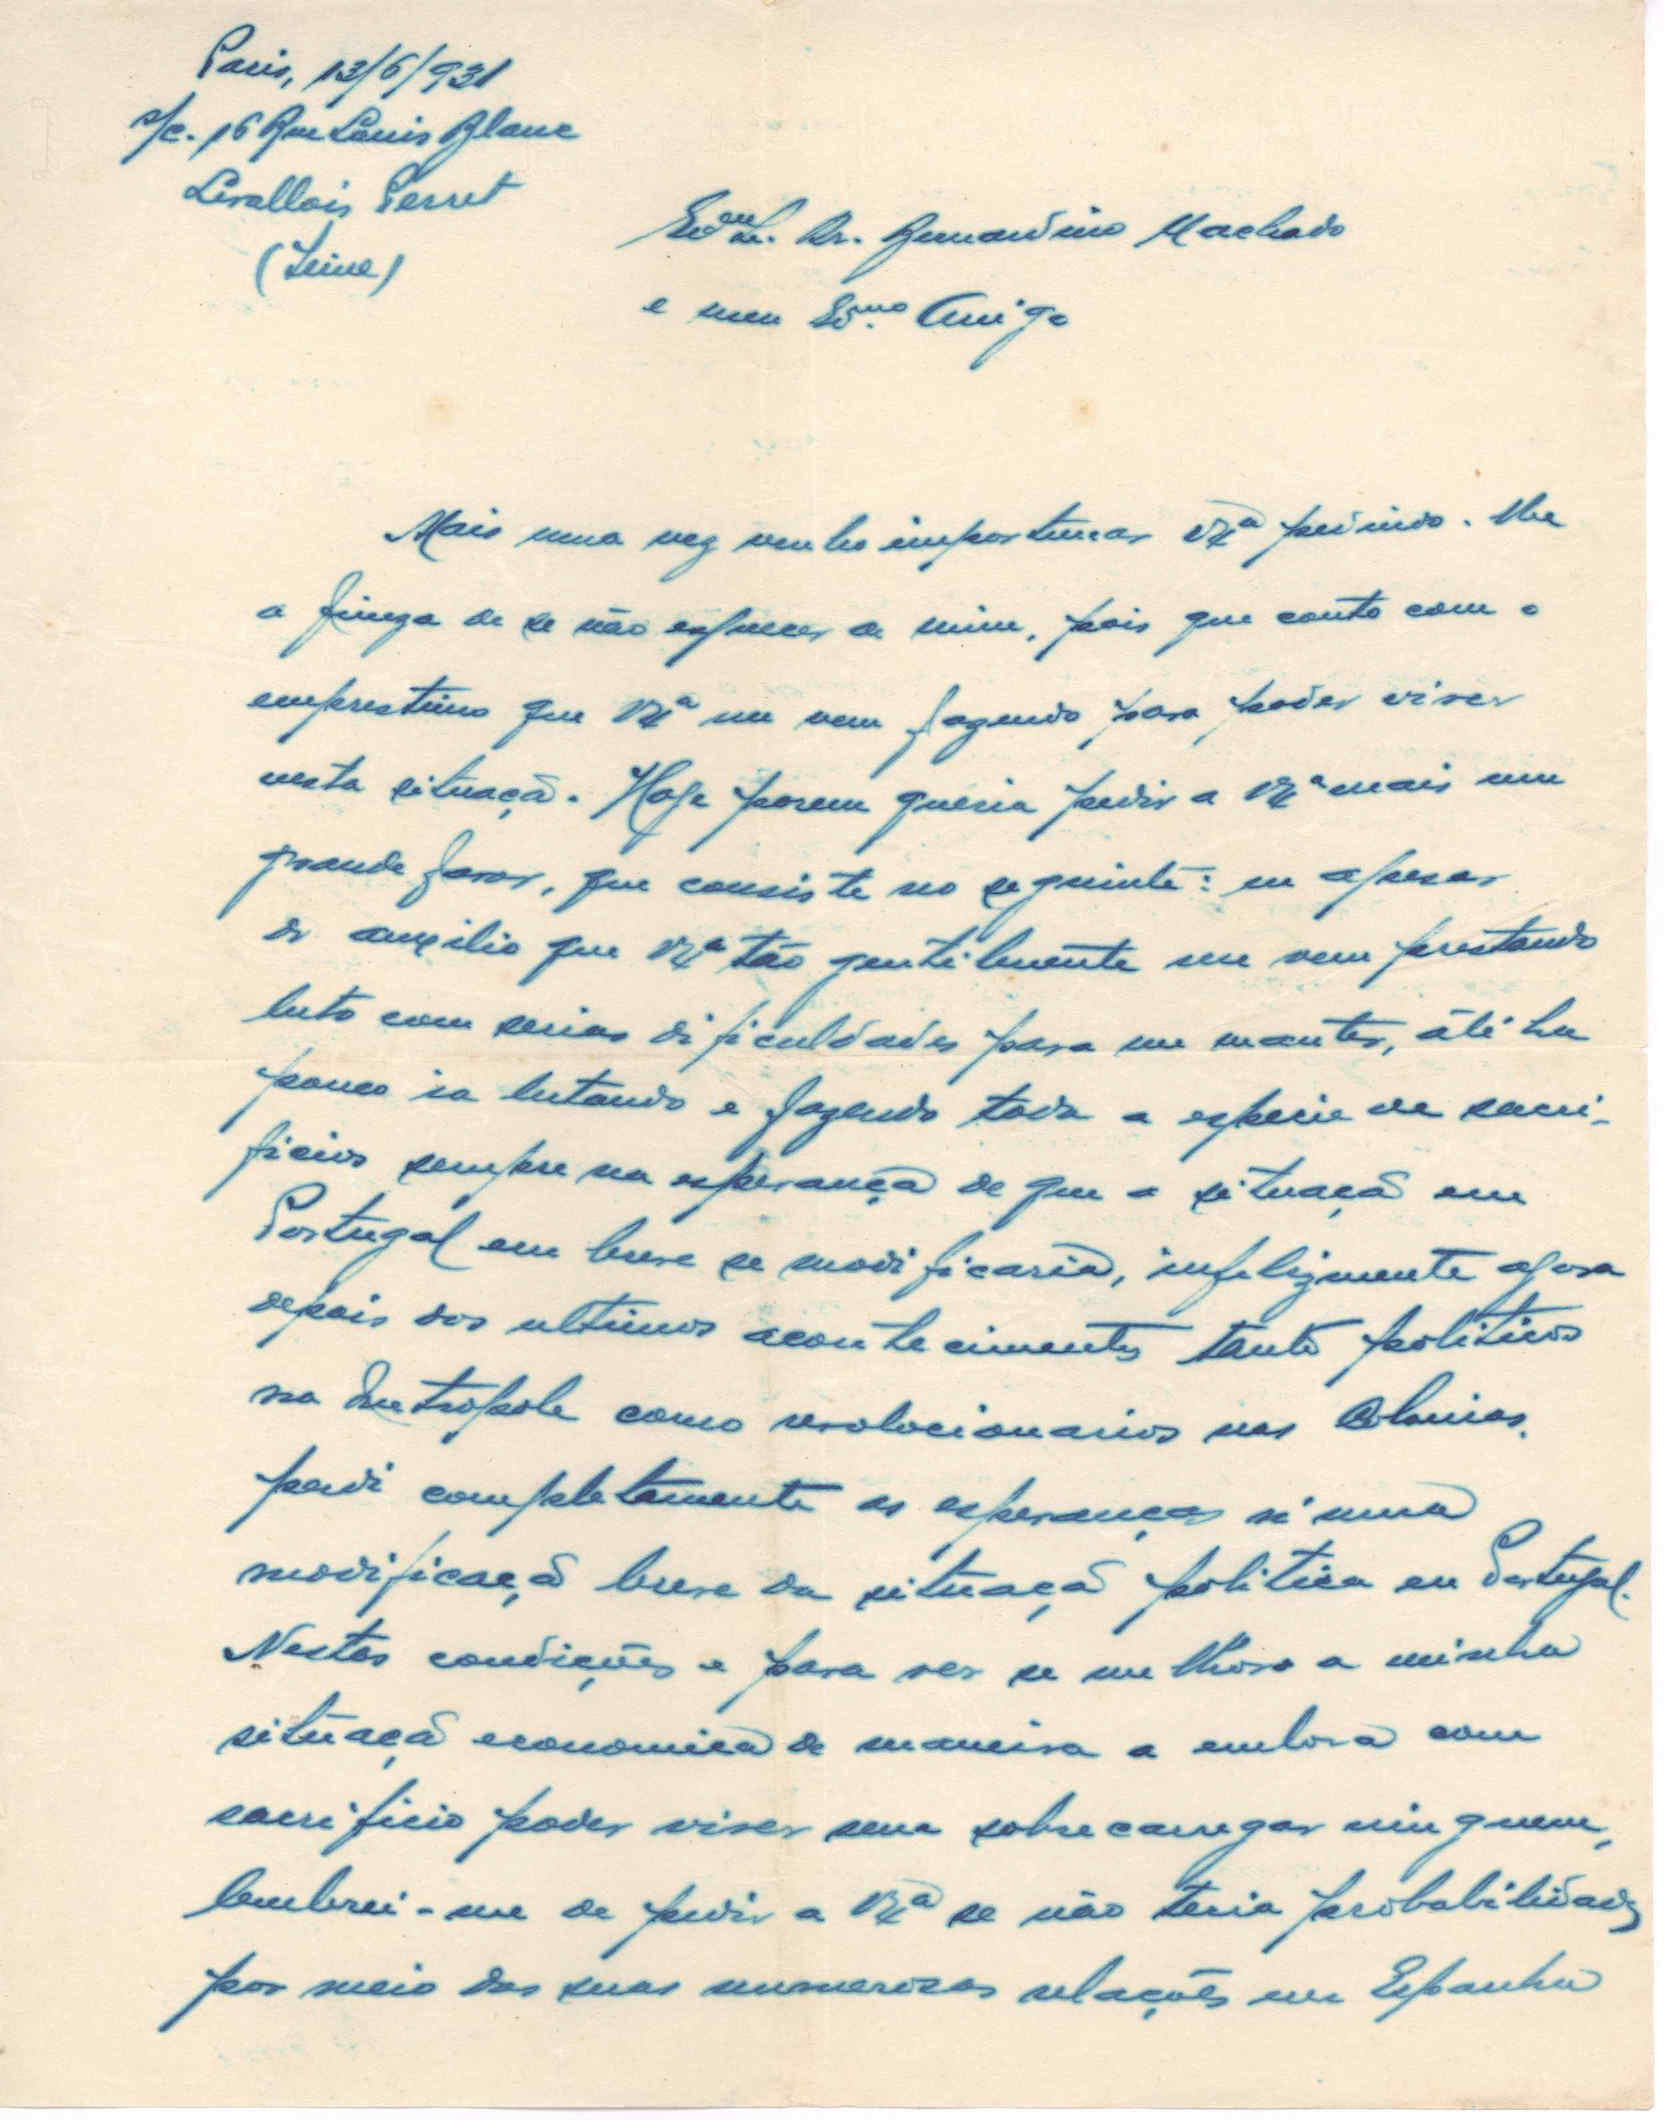 Paris, 13/6/931
s/c. 16 Rue Louis Blanc
Levallois Perret
(Seine)
Exmo. Sr. Dr. Bernardino Machado
e meu Exmo. Amigo
Mais uma vez venho importunar VExª pedindo-lhe
a fineza de se não esquecer de mim, pois que conto com o
emprestimo que VExª me vem fazendo para poder viver
nesta situaçã. Hoje porem queria pedir a VExª mais um
grande favor, que consiste no seguinte: eu apesar
do auxilio que VExª tão gentilmente me vem prestando
luto com serias dificuldades para me manter, áté ha
pouco ia lutando e fazendo toda a especie de sacri-
ficios sempre na esperança de que a situaçã em
Portugal em breve se modificaria, infelizmente agora
depois dos ultimos acontecimentos tanto politicos
na Metropole como revolocionarios nas Colonias,
perdi completamente as esperanças n'uma
modificaçã breve da situaçã politica em Portugal.
Nestas condições e para ver se melhoro a minha
situaçã economica de maneira a embora com
sacrificio poder viver sem sobrecarregar ninguem,
lembrei-me de pedir a VExª se não teria probabilidades
por meio das suas numerosas relações em Espanha